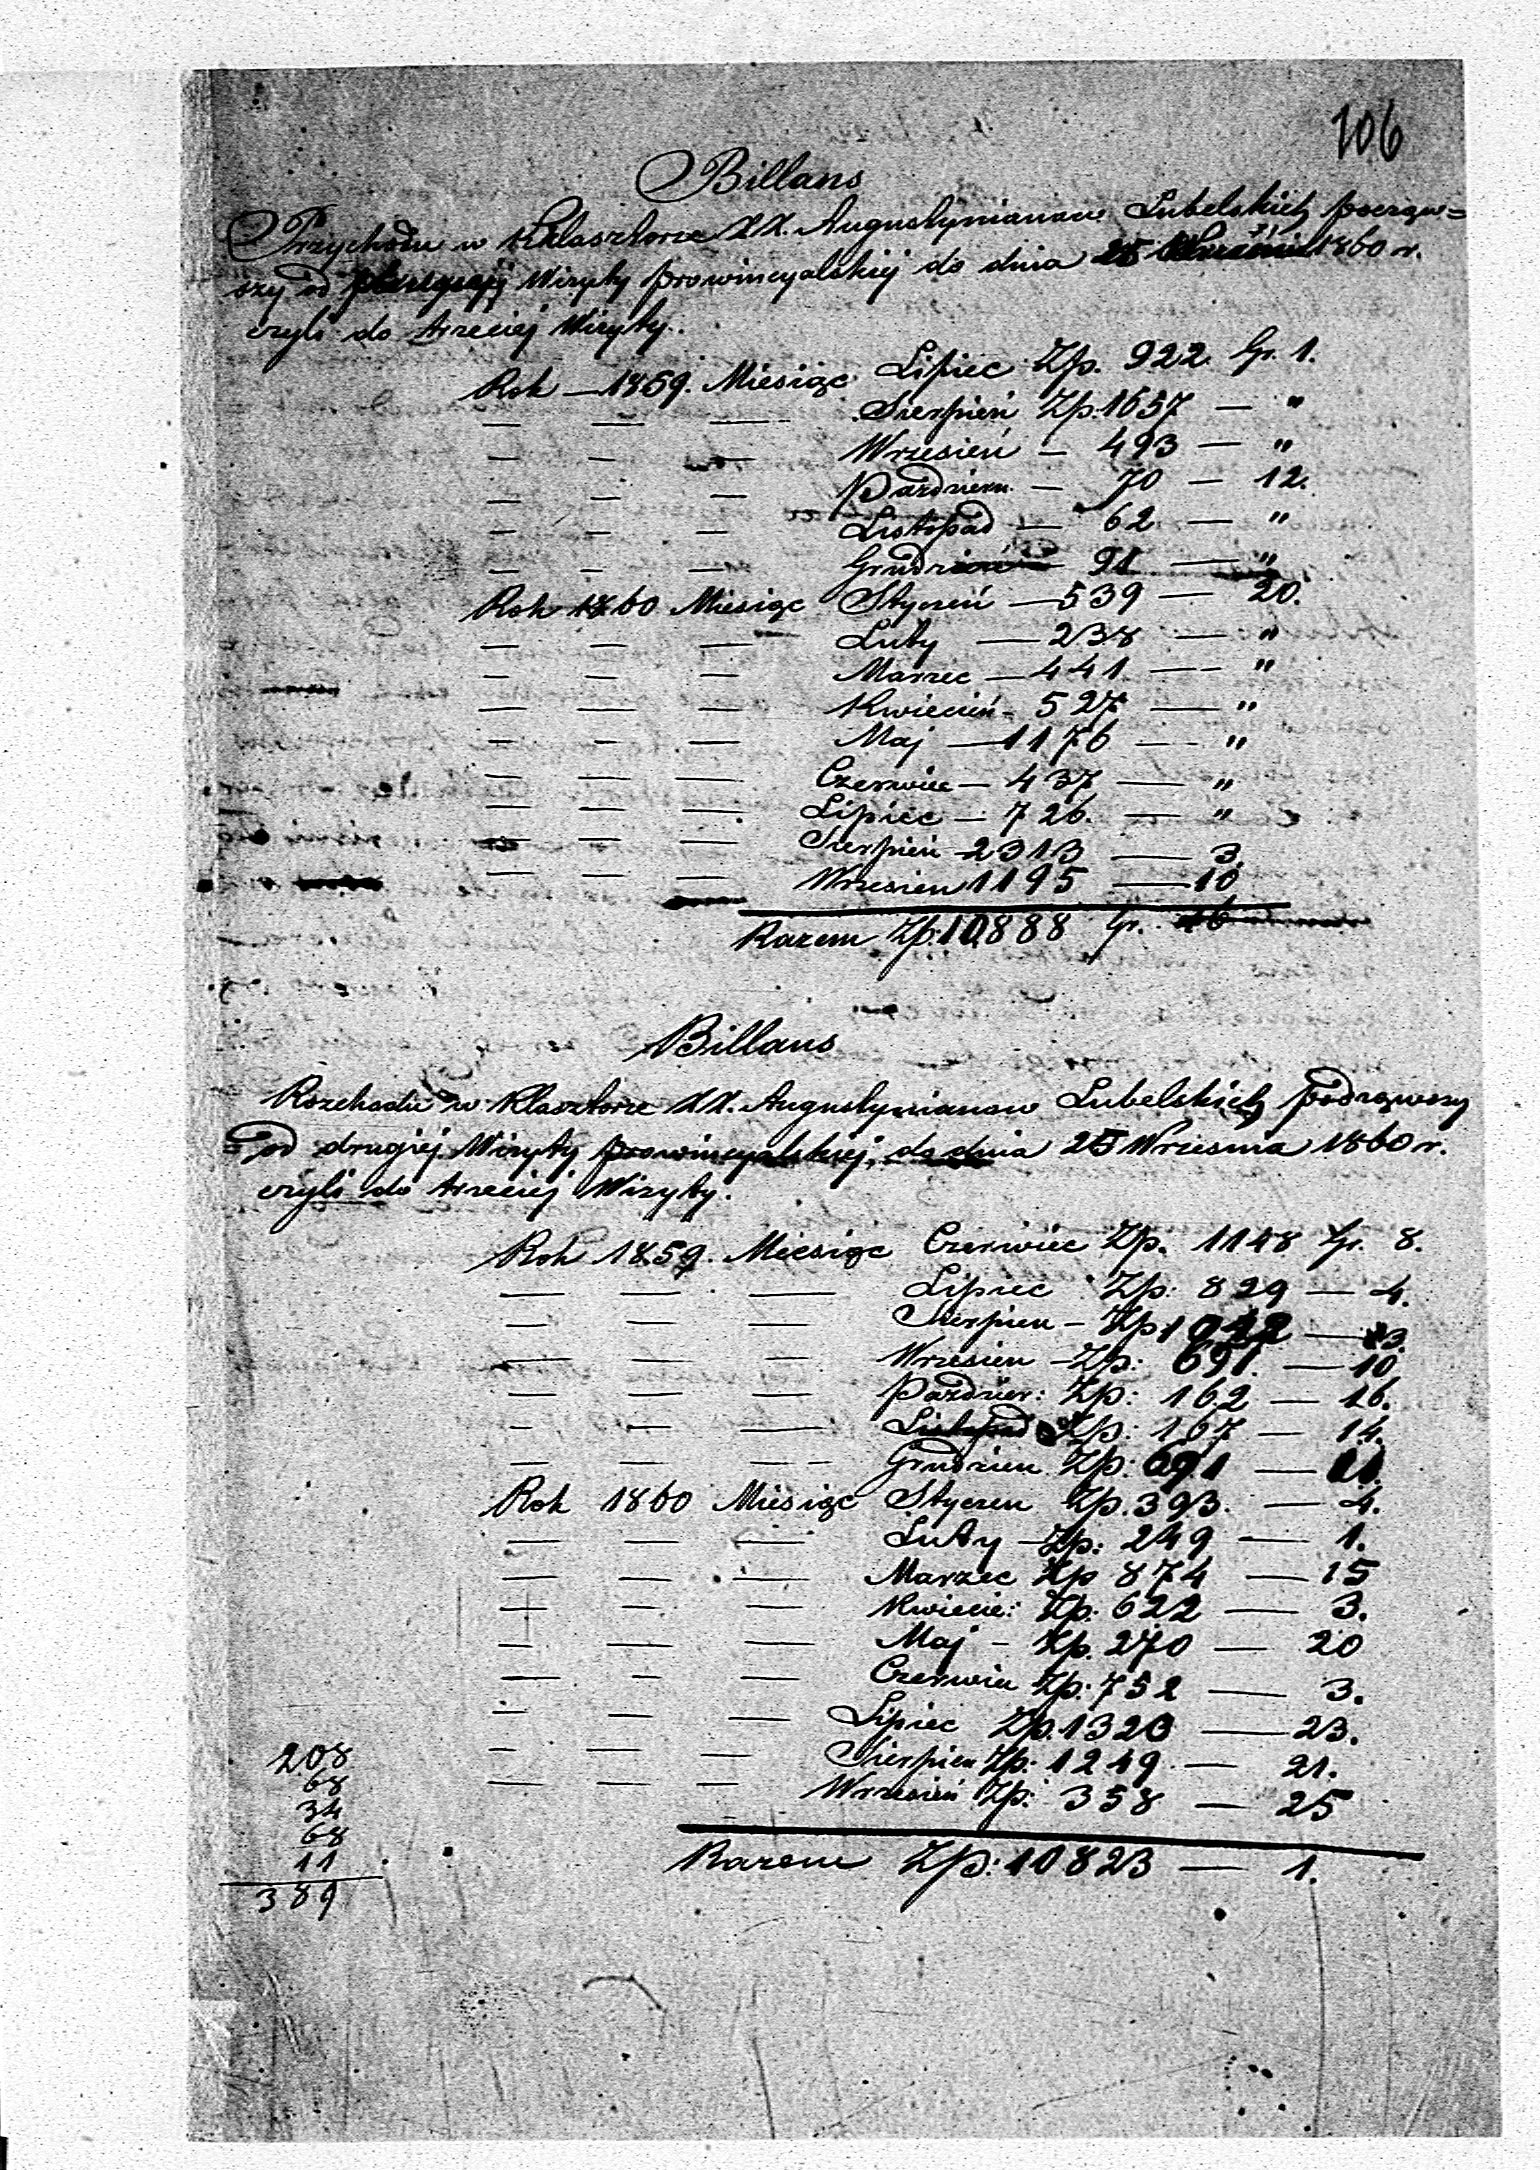 106
Billans
Przychodu w Klasztorze XX. Augustynianow Lubelskich począw=
szy od drugiej Wizyty prowincyalskiej do dnia 25 Września 1860 r.
czyli do trzeciej Wizyty.
Rok — 1859. Miesiąc Lipiec Zp. 922 Gr. 1.
— — — Sierpień Zp: 1657 — "
— — — Wrzesień — 493 — "
— — — Październ — 70 — 12.
— — — Listopad — 62 — "
— — — Grudzień — 91 — "
Rok 1860 Miesiąc Styczeń — 539 — 20.
— — — Luty — 238 — "
— — — Marzec — 441 — "
— — — Kwiecień — 527 — "
— — — Maj — 1176 — "
— — — Czerwiec — 437 — "
— — — Lipiec — 726. — "
— — — Sierpień — 2313 — 3.
— — — Wrzesien 1195 — 10
Razem Zp: 10888 Gr. 16
Billans
Rozchodu w Klasztorze XX. Augustynianow Lubelskich począwszy
od drugiej Wizyty prowincyalskiej, do dnia 25 Wrzesnia 1860 r.
czyli do trzeciej Wizyty.
Rok 1859. Miesiąc Czerwiec Zp. 1148 Gr. 8.
— — — Lipiec Zp: 829 — 4.
— — — Sierpien — Zp 1042 — 3.
— — — Wrzesien — Zp: 691. — 10
— — — Pazdzier: Zp: 162 — 16.
— — — Listopad Zp: 167 — 14.
— — — Grudzien Zp: 691 — 11.
Rok 1860 Miesiąc Styczen Zp. 393. — 4.
— — — Luty — Zp: 249 — 1.
— — — Marzec Zp 874 — 15
— — — Kwiecie: Zp: 622 — 3.
— — — Maj — Zp. 270 — 20
— — — Czerwiec Zp: 752 — 3.
— — — Lipiec Zp. 1320 — 23.
— — — Sierpien Zp: 1249 — 21.
— — — Wrzesień Zp: 358 — 25
Razem Zp: 10823 — 1.
208
68
34
68
11
389